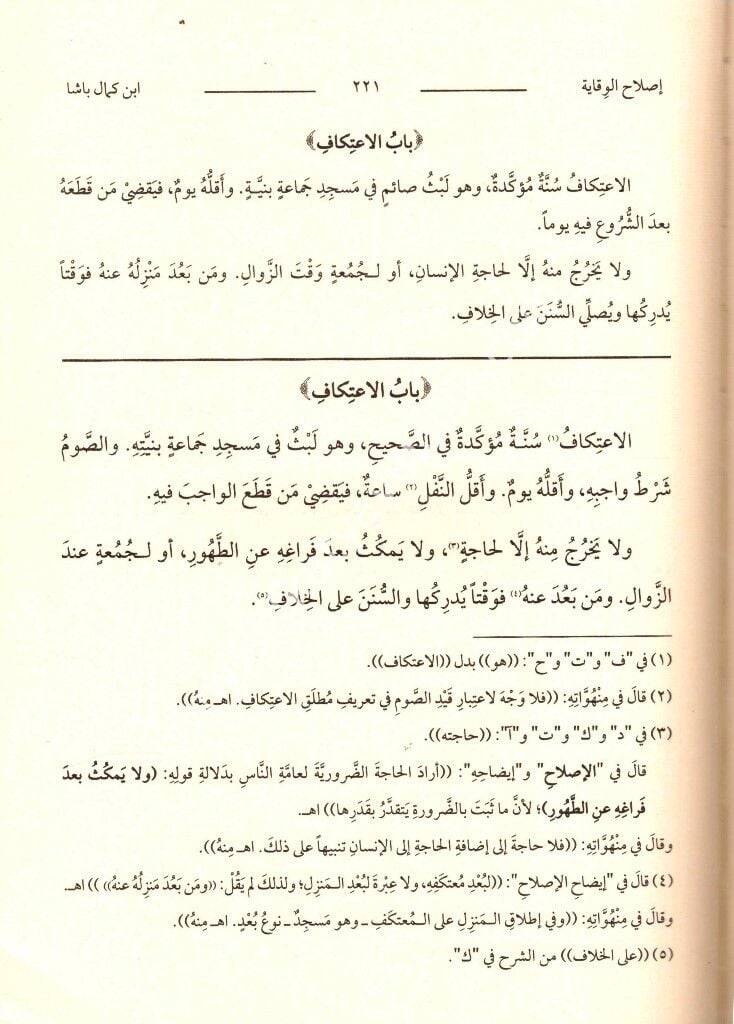 إصلاح الوِقاية ٢٢١ ابن كمال باشا
﴿بابُ الاعتِكافِ﴾
الاعتِكافُ سُنَّةٌ مُؤكَّدةٌ، وهو لَبْثُ صائمٍ في مَسجِدِ جَماعةٍ بنيَّـةٍ. وأقلُّهُ يومٌ، فيَقضِيْ مَن قَطَعَهُ
بعدَ الشُّرُوعِ فيهِ يوماً.
ولا يَخرُجُ منهُ إلَّا لحاجةِ الإنسانِ، أو لـجُمُعةٍ وَقْتَ الزَّوالِ. ومَن بَعُدَ مَنْزِلُهُ عنهُ فوَقْتاً
يُدرِكُها ويُصلِّي السُّنَنَ على الخِلافِ.
﴿بابُ الاعتِكافِ﴾
الاعتِكافُ(١) سُنَّـةٌ مُؤكَّدةٌ في الصَّحيحِ، وهو لَبْثٌ في مَسجِدِ جَماعةٍ بنيَّتِهِ. والصَّومُ
شَرْطُ واجبِهِ، وأقلُّهُ يومٌ. وأقلُّ النَّفْلِ(٢) ساعةٌ، فيَقضِيْ مَن قَطَعَ الواجبَ فيهِ.
ولا يَخرُجُ مِنهُ إلَّا لحاجةٍ(٣)، ولا يَمكُثُ بعدَ فَراغِهِ عنِ الطَّهُورِ، أو لـجُمُعةٍ عندَ
الزَّوالِ. ومَن بَعُدَ عنهُ(٤) فوَقْتاً يُدرِكُها والسُّنَنَ على الخِلافِ(٥).
(١) في "ف" و"ت" و"ح": ((هو)) بدل ((الاعتكاف)).
(٢) قالَ في مِنْهُوَّاتِهِ: ((فلا وَجْهَ لاعتِبارِ قَيْدِ الصَّومِ في تعريفِ مُطلَقِ الاعتِكافِ. اهـ مِنهُ)).
(٣) في "د" و"ك" و"ت" و"آ": ((حاجته)).
قالَ في "الإصلاحِ" و"إيضاحِهِ": ((أرادَ الحاجةَ الضَّروريَّةَ لعامَّةِ النَّاسِ بدَلالةِ قولِهِ: (ولا يَمكُثُ بعدَ
فَراغِهِ عنِ الطَّهُورِ)؛ لأنَّ ما ثَبَتَ بالضَّرورةِ يَتقدَّرُ بقَدَرِها)) اهـ.
وقالَ في مِنْهُوَّاتِهِ: ((فلا حاجةَ إلى إضافةِ الحاجةِ إلى الإنسانِ تنبيهاً على ذلكَ. اهـ مِنهُ)).
(٤) قالَ في "إيضاحِ الإصلاحِ": ((لبُعْدِ مُعتكَفِهِ، ولا عِبْرةَ لبُعْدِ الـمَنزِلِ؛ ولذلكَ لم يَقُلْ: «ومَن بَعُدَ مَنزِلُهُ عنهُ» )) اهـ.
وقالَ في مِنْهُوَّاتِهِ: ((وفي إطلاقِ الـمَنزِلِ على الـمُعتكَفِ ـ وهو مَسجِدٌ ـ نوعُ بُعْدٍ. اهـ مِنهُ)).
(٥) ((على الخلاف)) من الشرح في "ك".